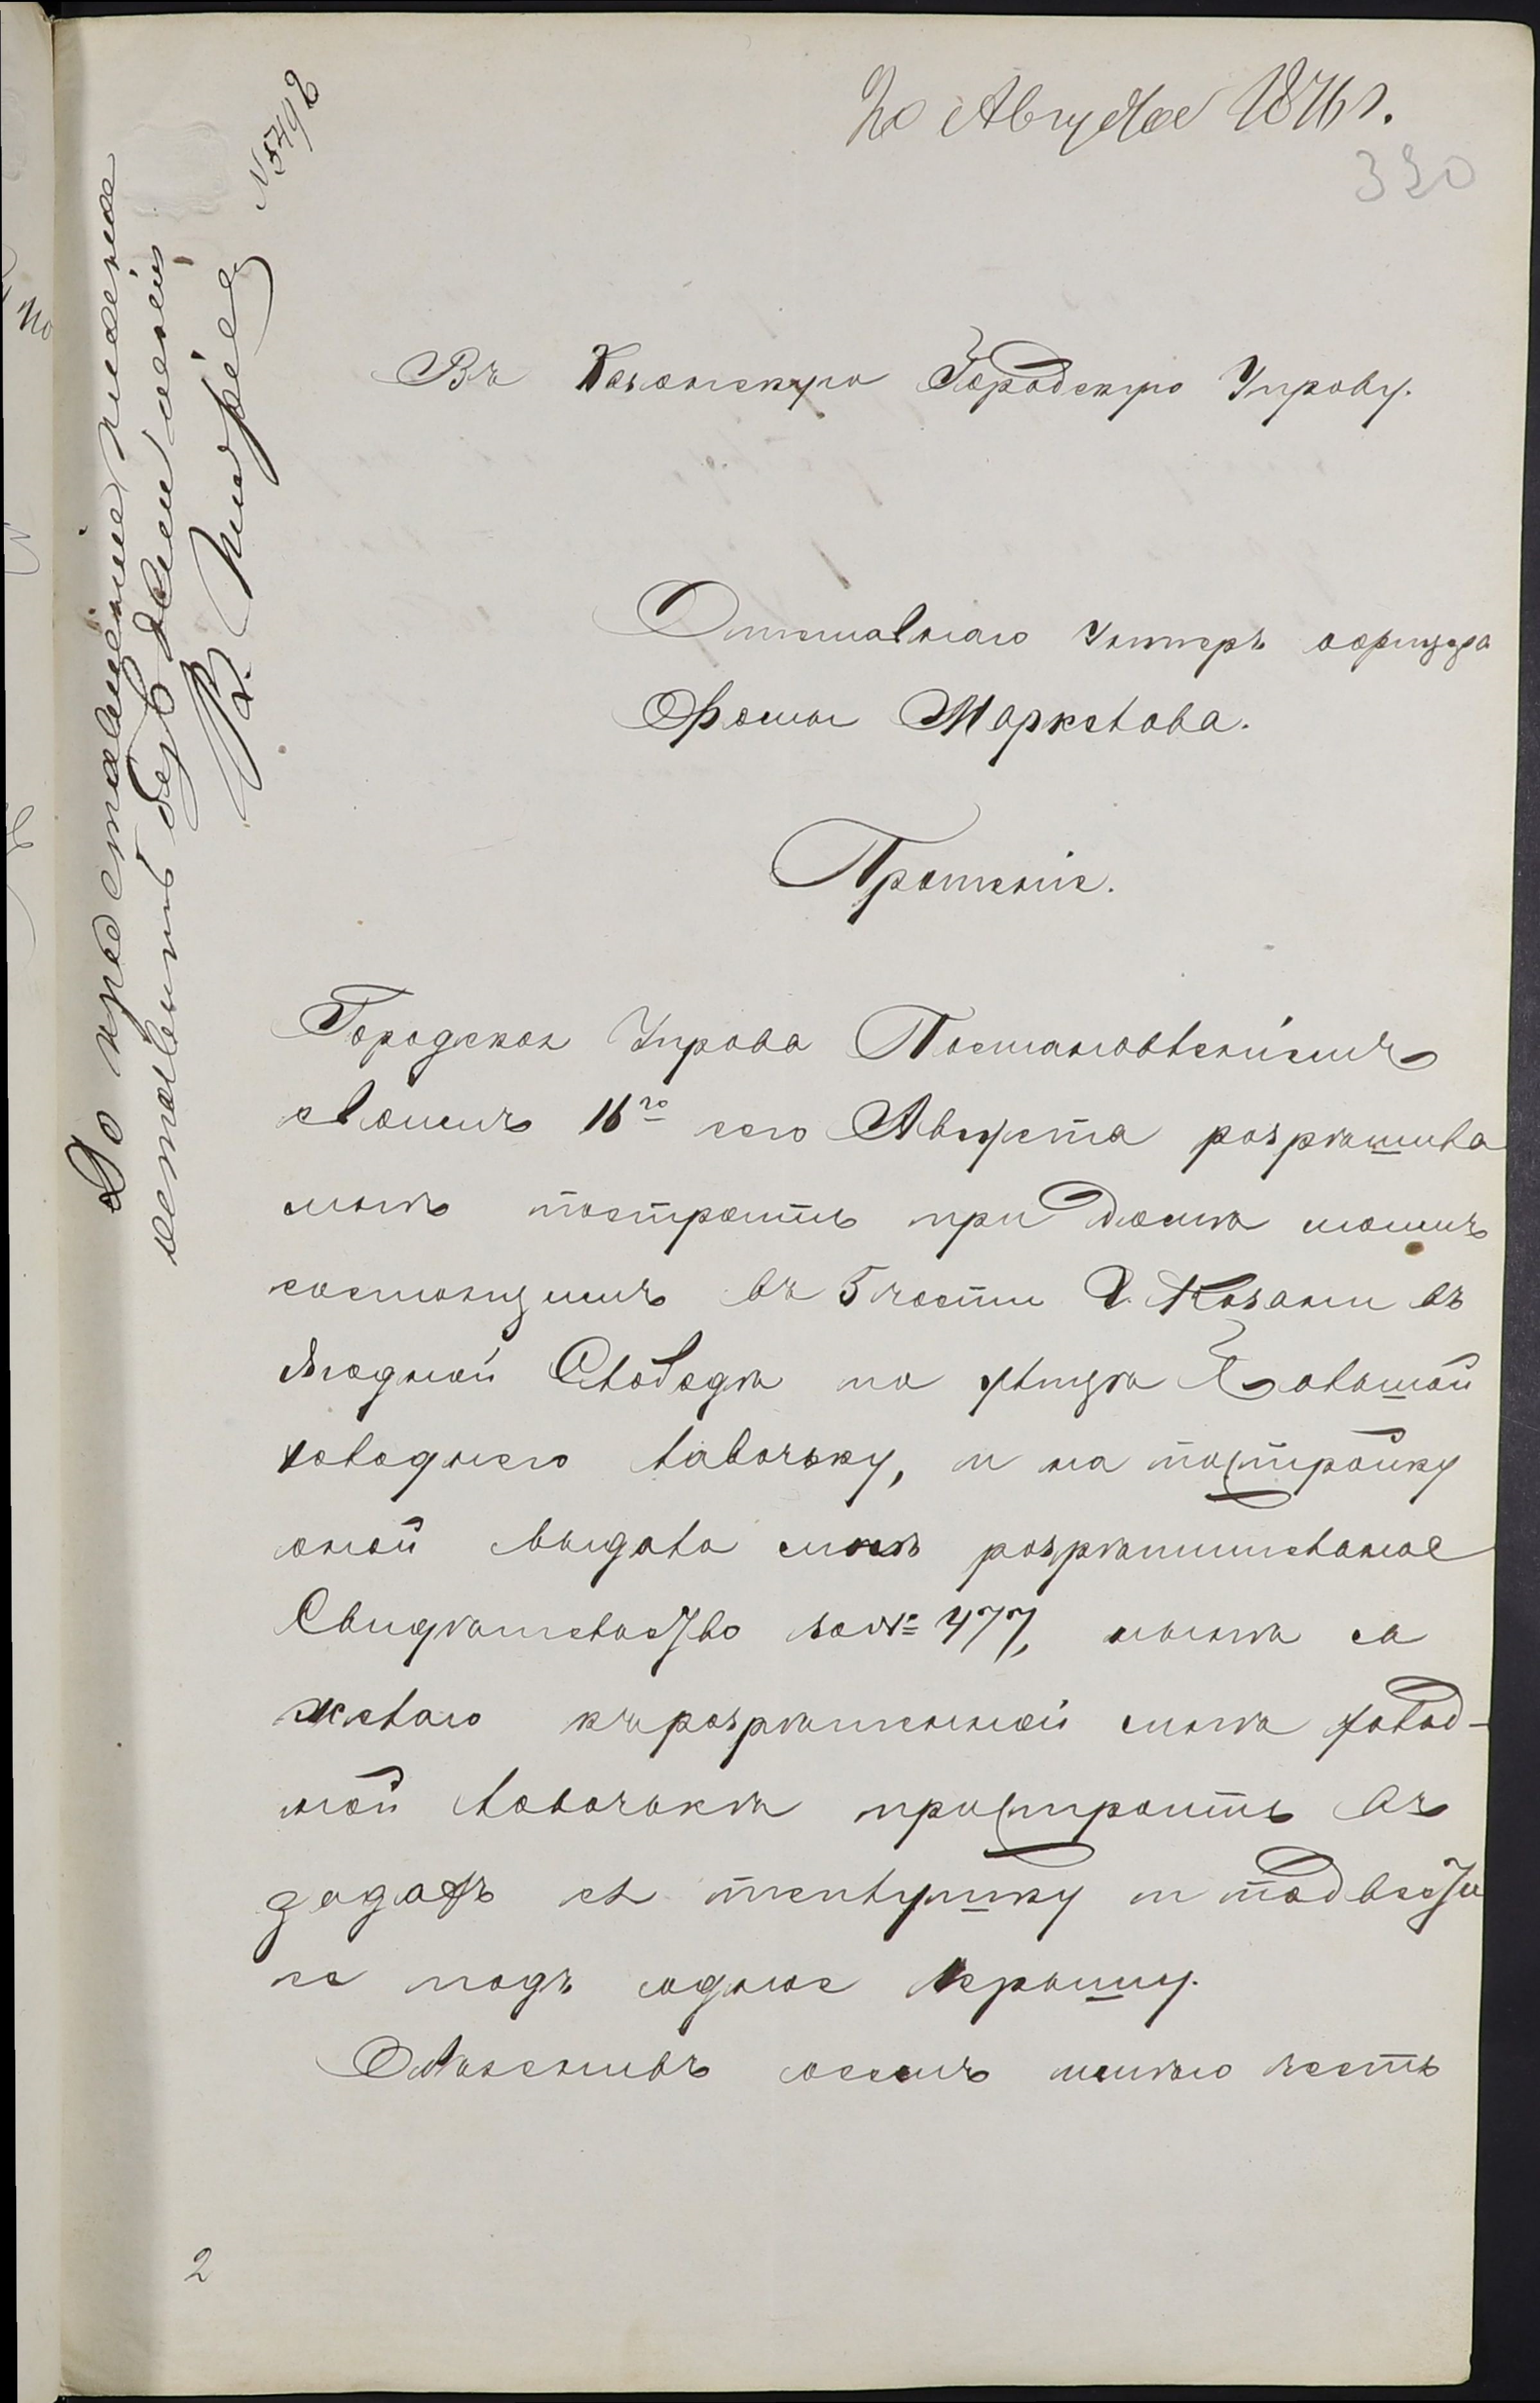 20 Августа 1876 г.
320
№ 5492
До представленiя плана
оставить безъ движенiя
Въ Казанскую Городскую Управу.
Отставнаго Унтеръ офицера
Фомы Маркелова.
Прошенiе.
Городская Управа Постановленiемъ
своимъ 16го сего Августа разрешила
мнѣ построить при домѣ моемъ
состоящимъ въ 5 части Г. Казани въ
Ягодной Слободѣ на улицѣ
холодную лавочьку, и на постройку
оной выдала мнѣ разрѣшительное
Свидѣтельство за № 477, нынѣ я
желаю къ разрѣшенной мнѣ холод-
ной лавочькѣ пристроить въ
задахъ ея теплушку и подвести
ее подъ одное крышу.
Объяснивъ осемъ имѣю честь
2